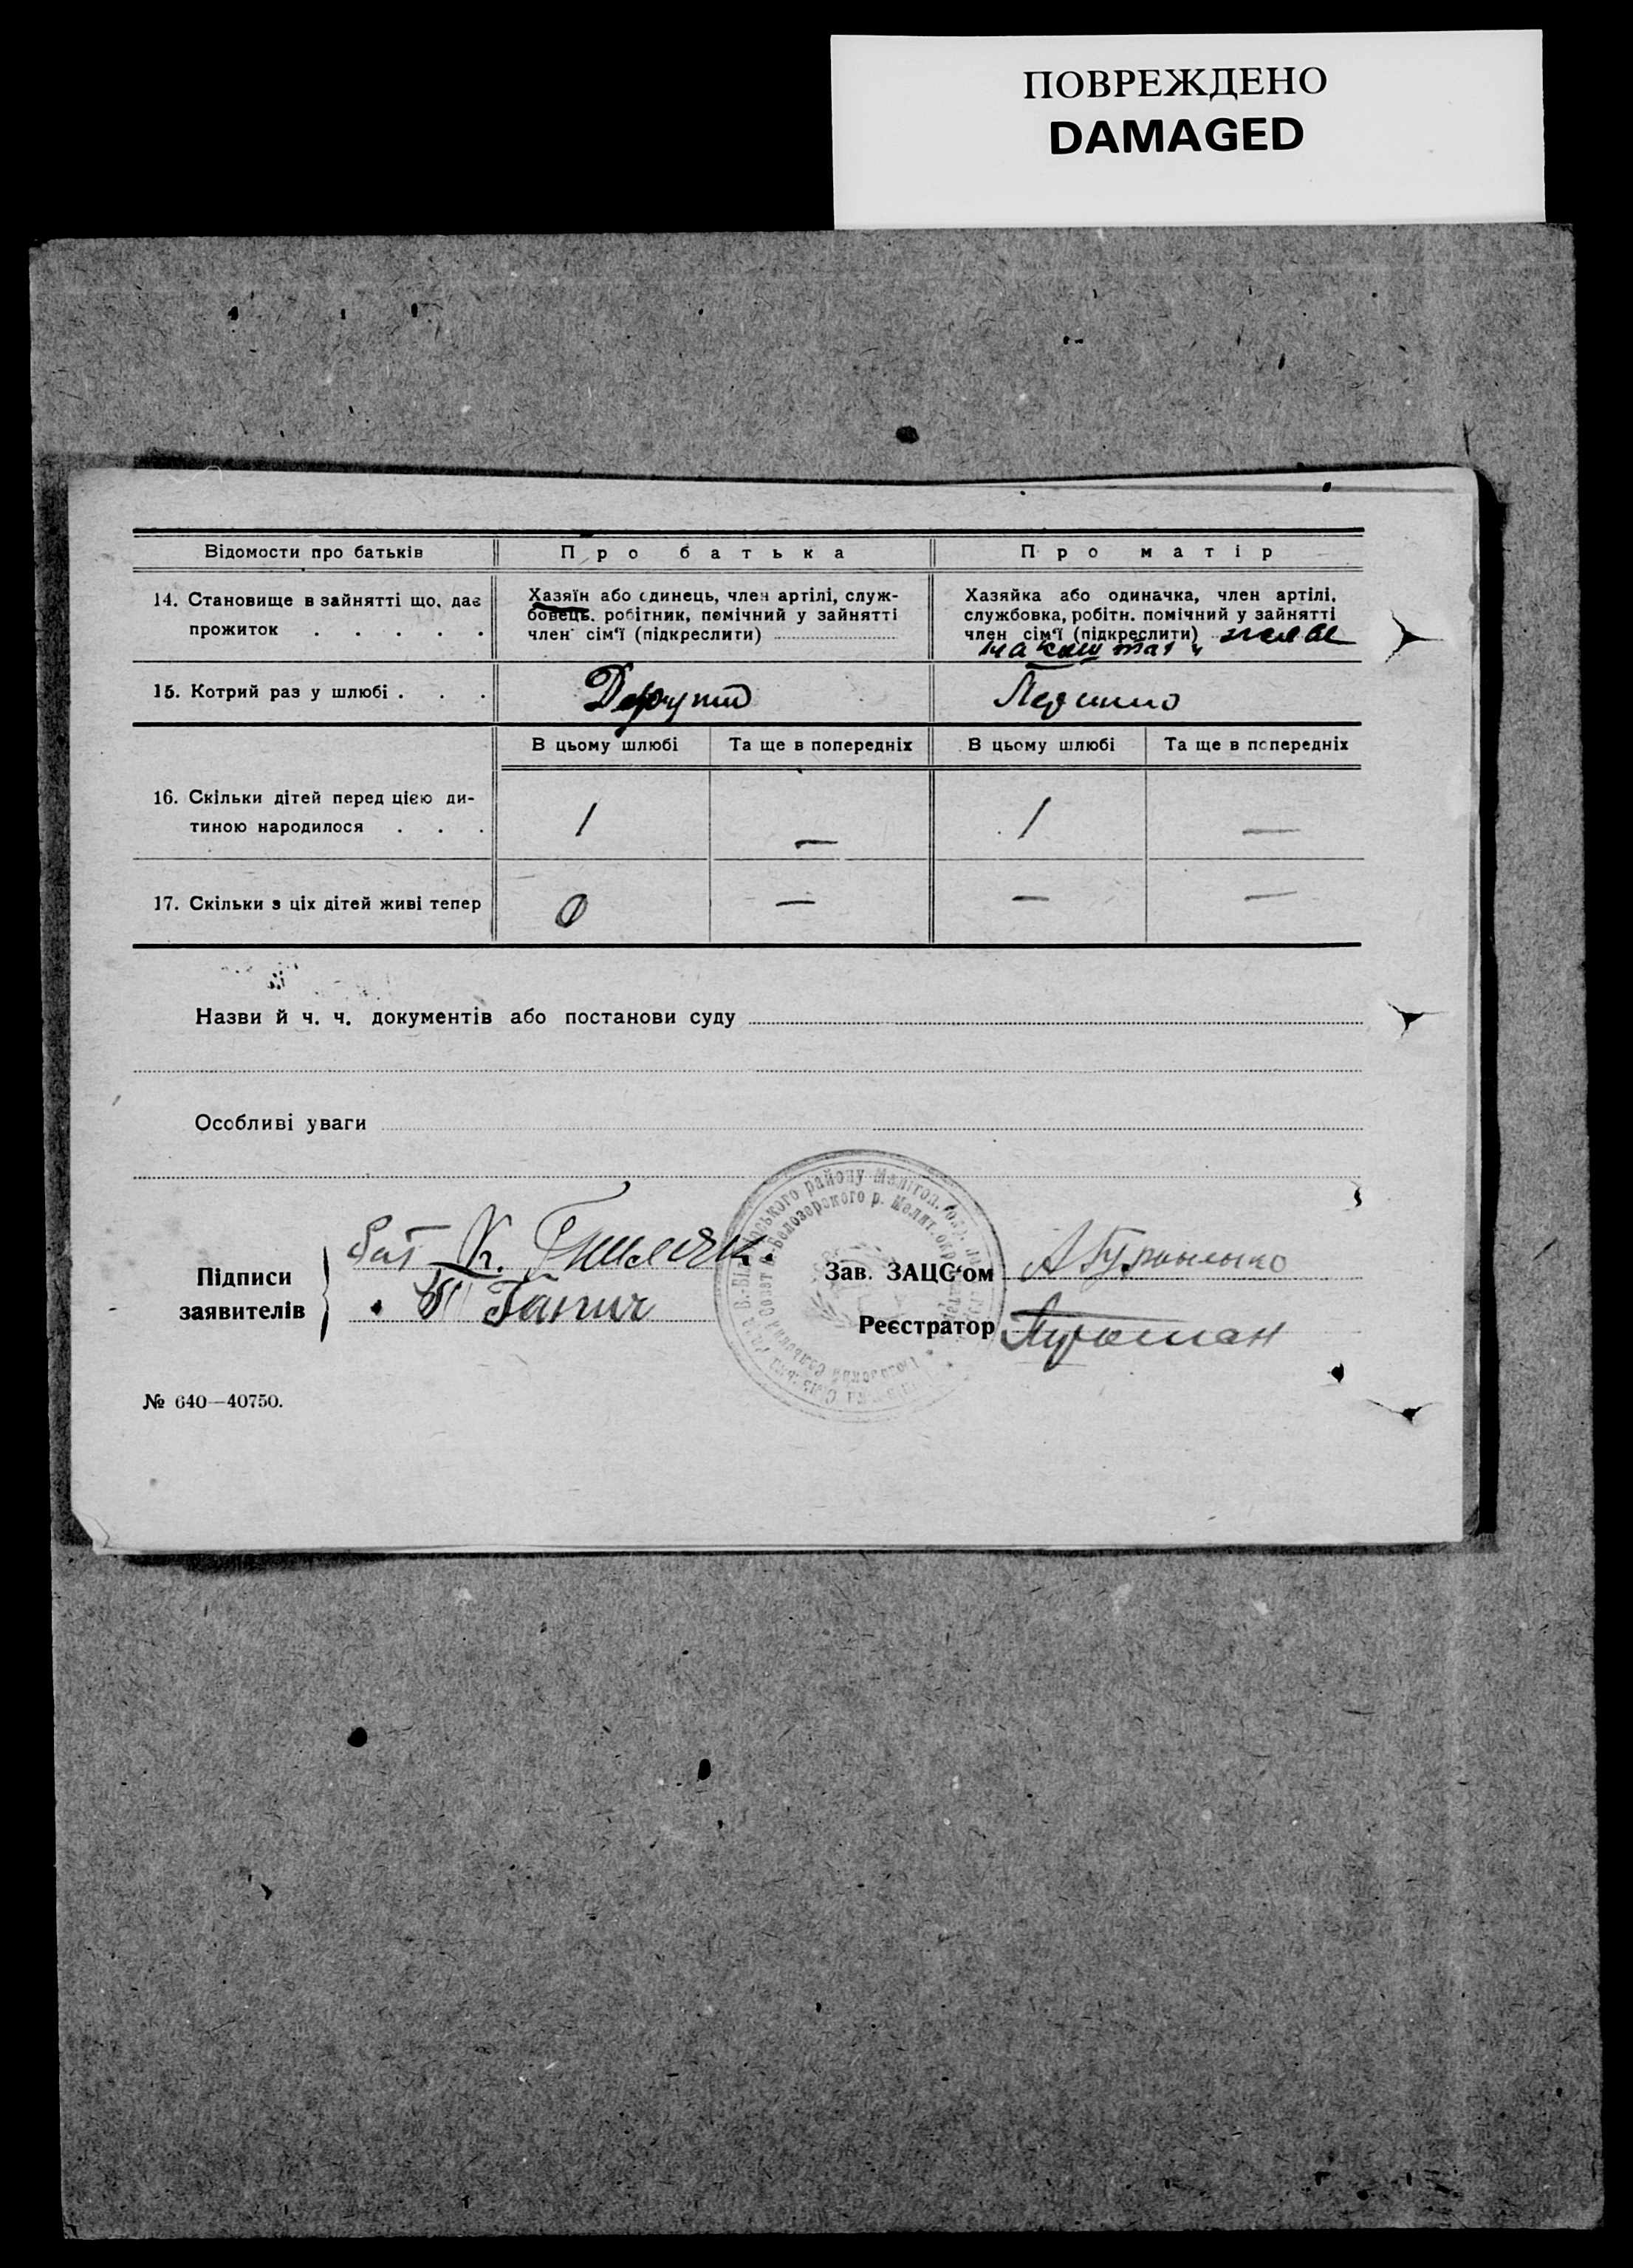 ПОВРЕЖДЕНО
DAMAGED
Відомости про батьків
Про батька
Про матір
14. Становище в зайнятті що, дає
прожиток . . . . .
Хазяїн або єдинець, член артілі, служ-
бовець, робітник, помічний у зайнятті
член сім'ї (підкреслити)
Хазяйка або одиначка, член артілі,
службовка, робітн. помічний у зайнятті
член сім'ї (підкреслити) живе
на кошта
15. Котрий раз у шлюбі . . .
В цьому шлюбі
Та ще в попередніх
В цьому шлюбі
Та ще в попередніх
16. Скільки дітей перед цією ди-
тиною народилося . . .
1 — 1 —
17. Скільки з ціх дітей живі тепер
0 — — —
Назви й ч. ч. документів або постанови суду
Особливі уваги
Підписи
заявителів
бат К.
Зав. ЗАЦС'ом
Реєстратор
№ 640—40750.